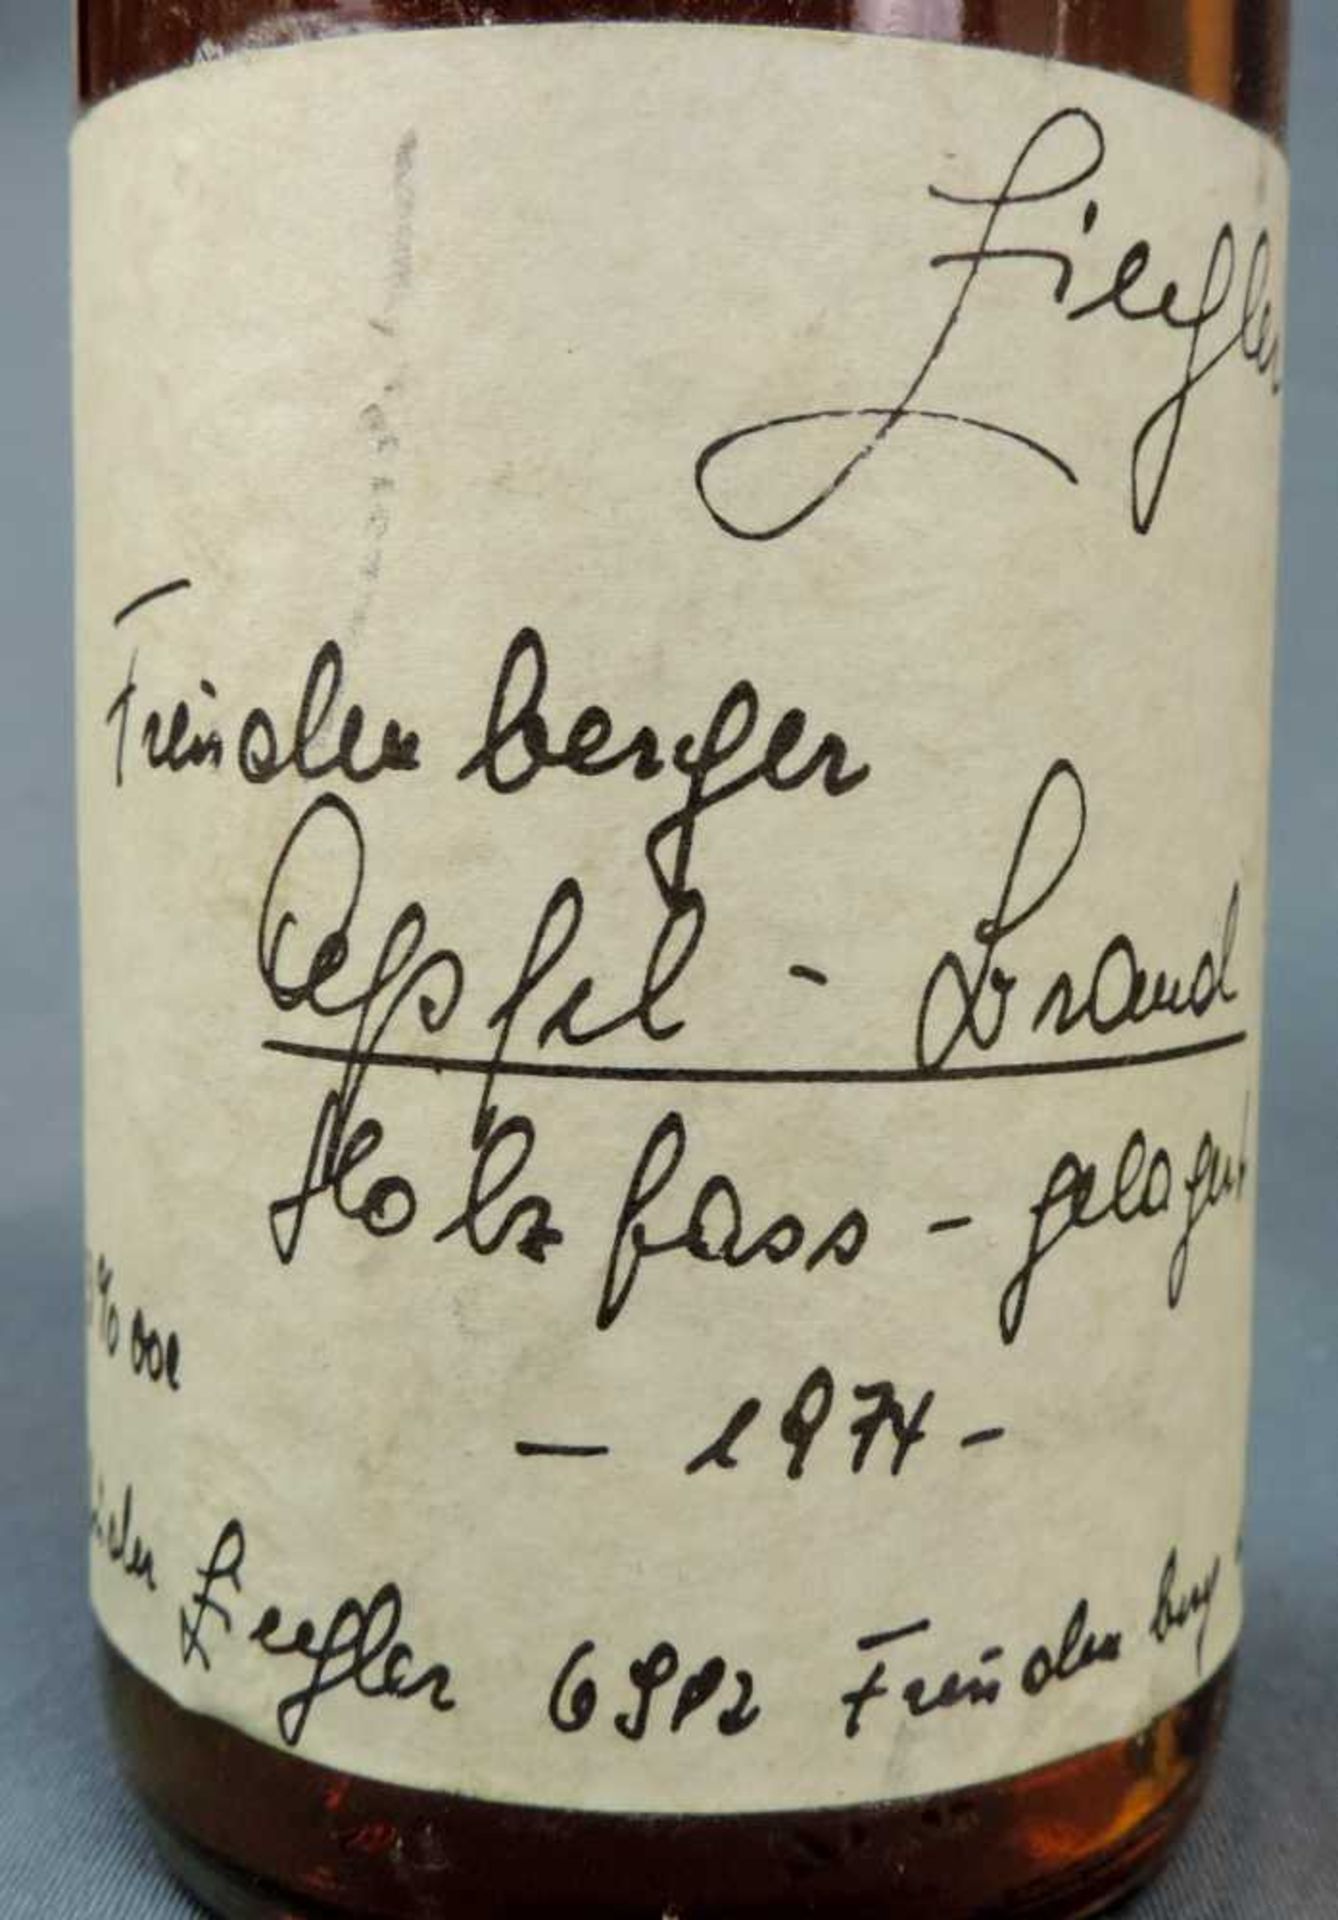 Ziegler
Freudenberger
Apfel - Brand
Holzfass - gelagert
% vol
- 1974 -
Ziegler 6982 Freudenberg